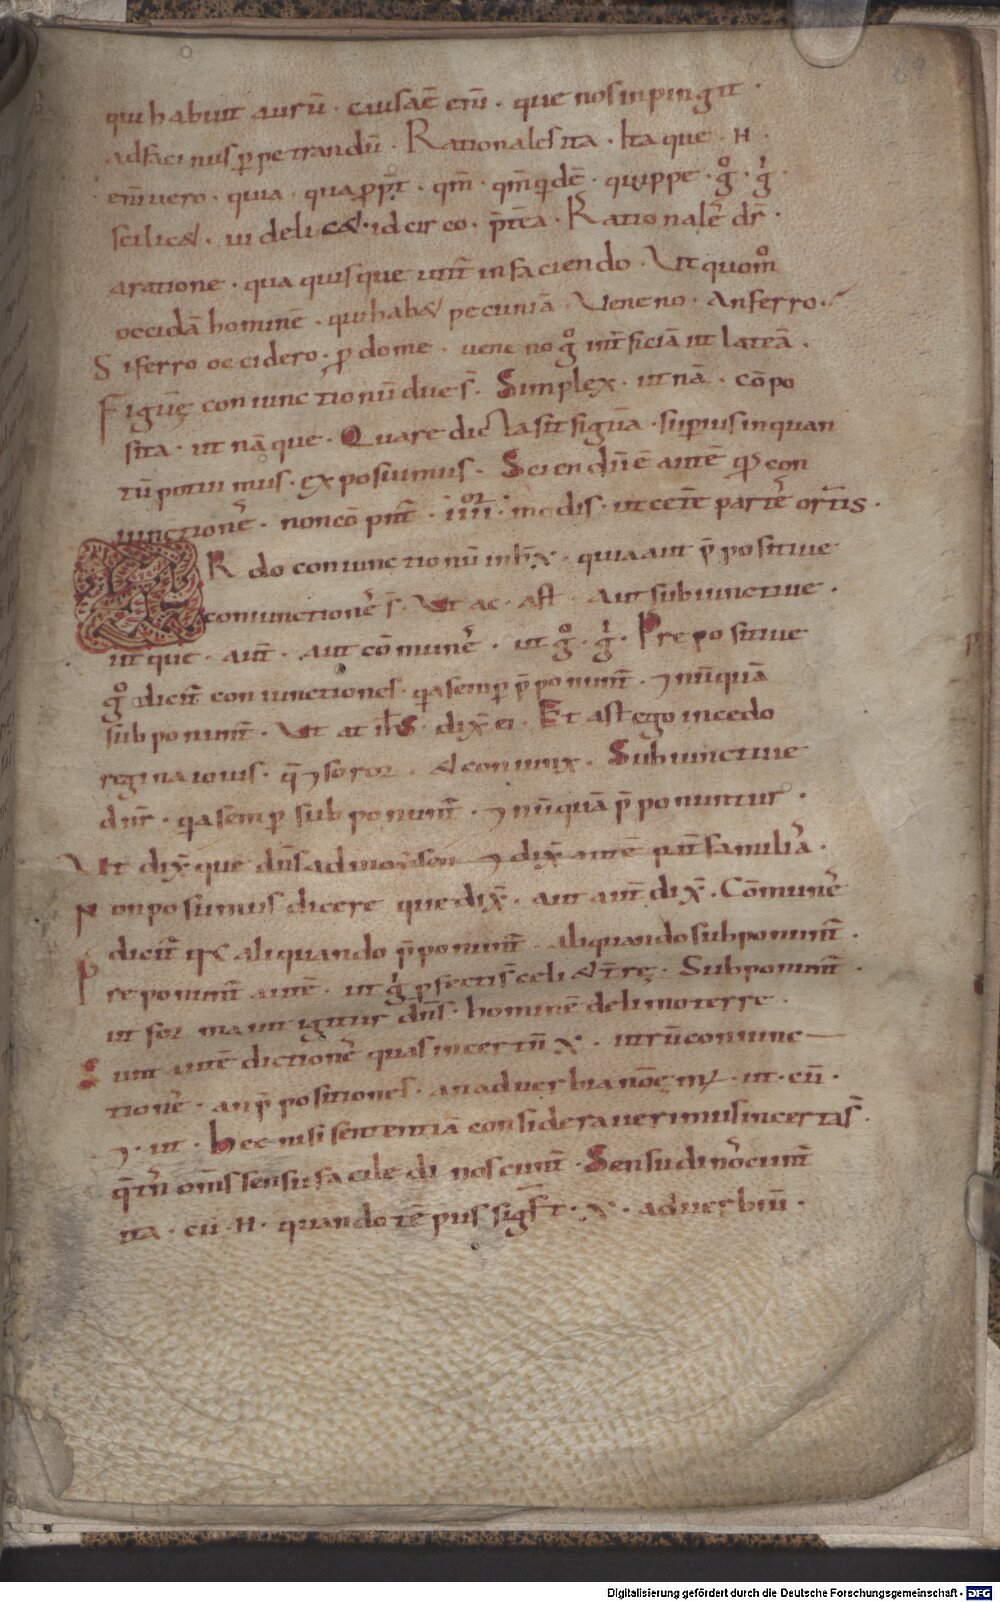 qui habuit aurū · causa ē em̄ · que nos inpingit ·
ad facinus ꝑpetrandū · Rationales ita · Itaque · H ·
em̄vero · quia · quapp̄t · qm̄ · qm̄qidē · quippe · g° · gⁱ ·
scilic& · videlic& · idcirco · p̄tea · Rationales dr̄ ·
a ratione · qua quisque utit̄ in faciendo · Ut quom°
occidā hominē · qui hab& pecuniā · Veneno · An ferro ·
Si ferro occidero · ꝑ do me · veneno g° int̄ficiā ut lateā ·
Figurę coniunctionū due s̄ · Simplex · ut nā · cōpo
sita · ut nāque · Quare dicta sit figura · suꝑius in quan
tū potuimus · exposuimus · Sciendū ē autē qd con
iunctiones · non cōpnt̄ · iiii or · modis · ut cet̄e partes or̄tis ·
ORdo coniunctionū in h̄ · quia aut p̄positive
coniunctiones s̄ · Ut ac · ast · Aut subiunctive ·
ut que · aut̄ · aut cōmunes · ut g° · gⁱ · Prepositive
g° dicūt̄ coniunctiones · qa semꝑ p̄ponunt̄ · ⁊ nūquā
subponunt̄ · Ut at ih̄s · dix̄ ei · Et ast ego incedo
regina iovis · q̄ ⁊ soror · & coniunx · Subiunctive
dnr̄ · qa semꝑ subponunt̄ · ⁊ nūquā p̄ponuntur ·
Ut dix̄que dn̄s ad moisen ⁊ dix̄ autē pat̄ familias ·
Non posumus dicere que dix̄ · aut aut̄ dix̄ · Cōmunes
dicūt̄ qa aliquando p̄ponunt̄ · aliquando subponunt̄ ·
Preponunt̄ autē · ut gⁱ ꝑfecti s̄ celi & t̄rę · Subponunt̄ ·
ut formavit igitur dn̄s · hominē de limo terre ·
Sunt autē dictiones quas incertū · utrū coniunc
tiones · an p̄positiones · an adverbia nō · ut · cū ·
⁊ · ut · Hec nisi sententiā consideraverimus incerta s̄ ·
q̄ tn̄ om̄s sensu facile dinoscunt̄ · Sensu dinoscunt̄
ita · cū · H · quando tēpus sigft · adverbiū ·
Digitalisierung gefördert durch die Deutsche Forschungsgemeinschaft - DFG